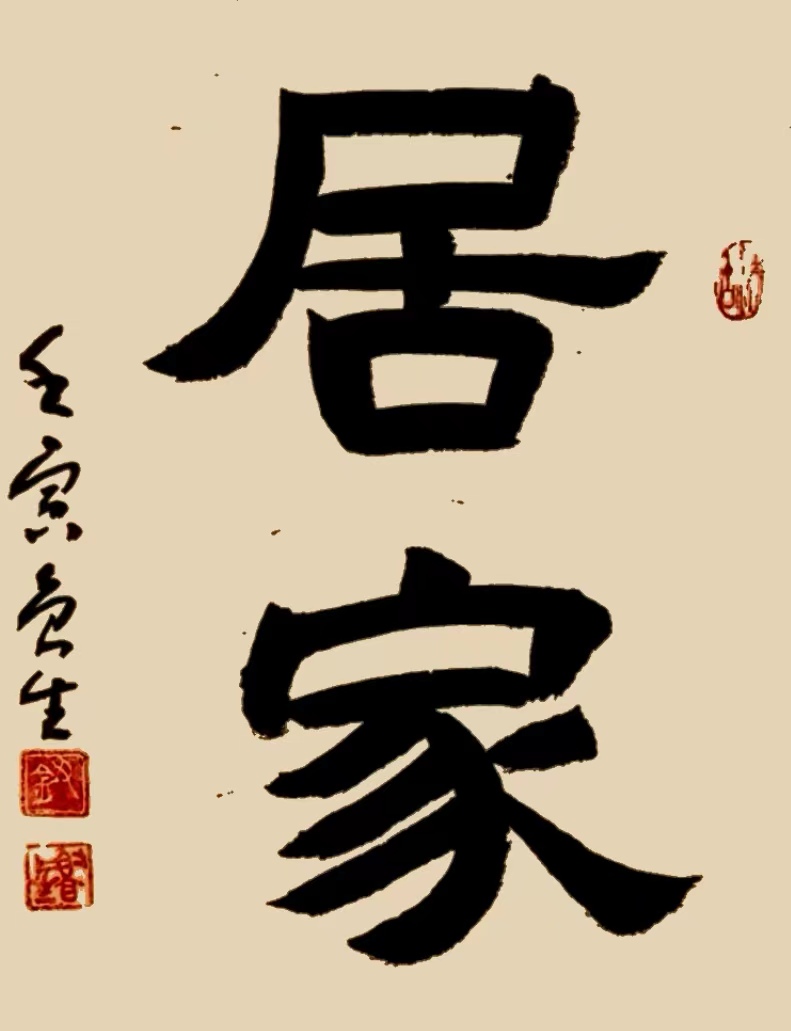 居家
壬寅魚生